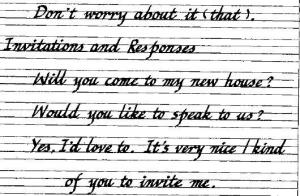 Don't worry about it (that).
Invitations and Responses
Will you come to my new house?
Would you like to speak to us?
Yes, I'd love to. It's very nice / kind
of you to invite me.